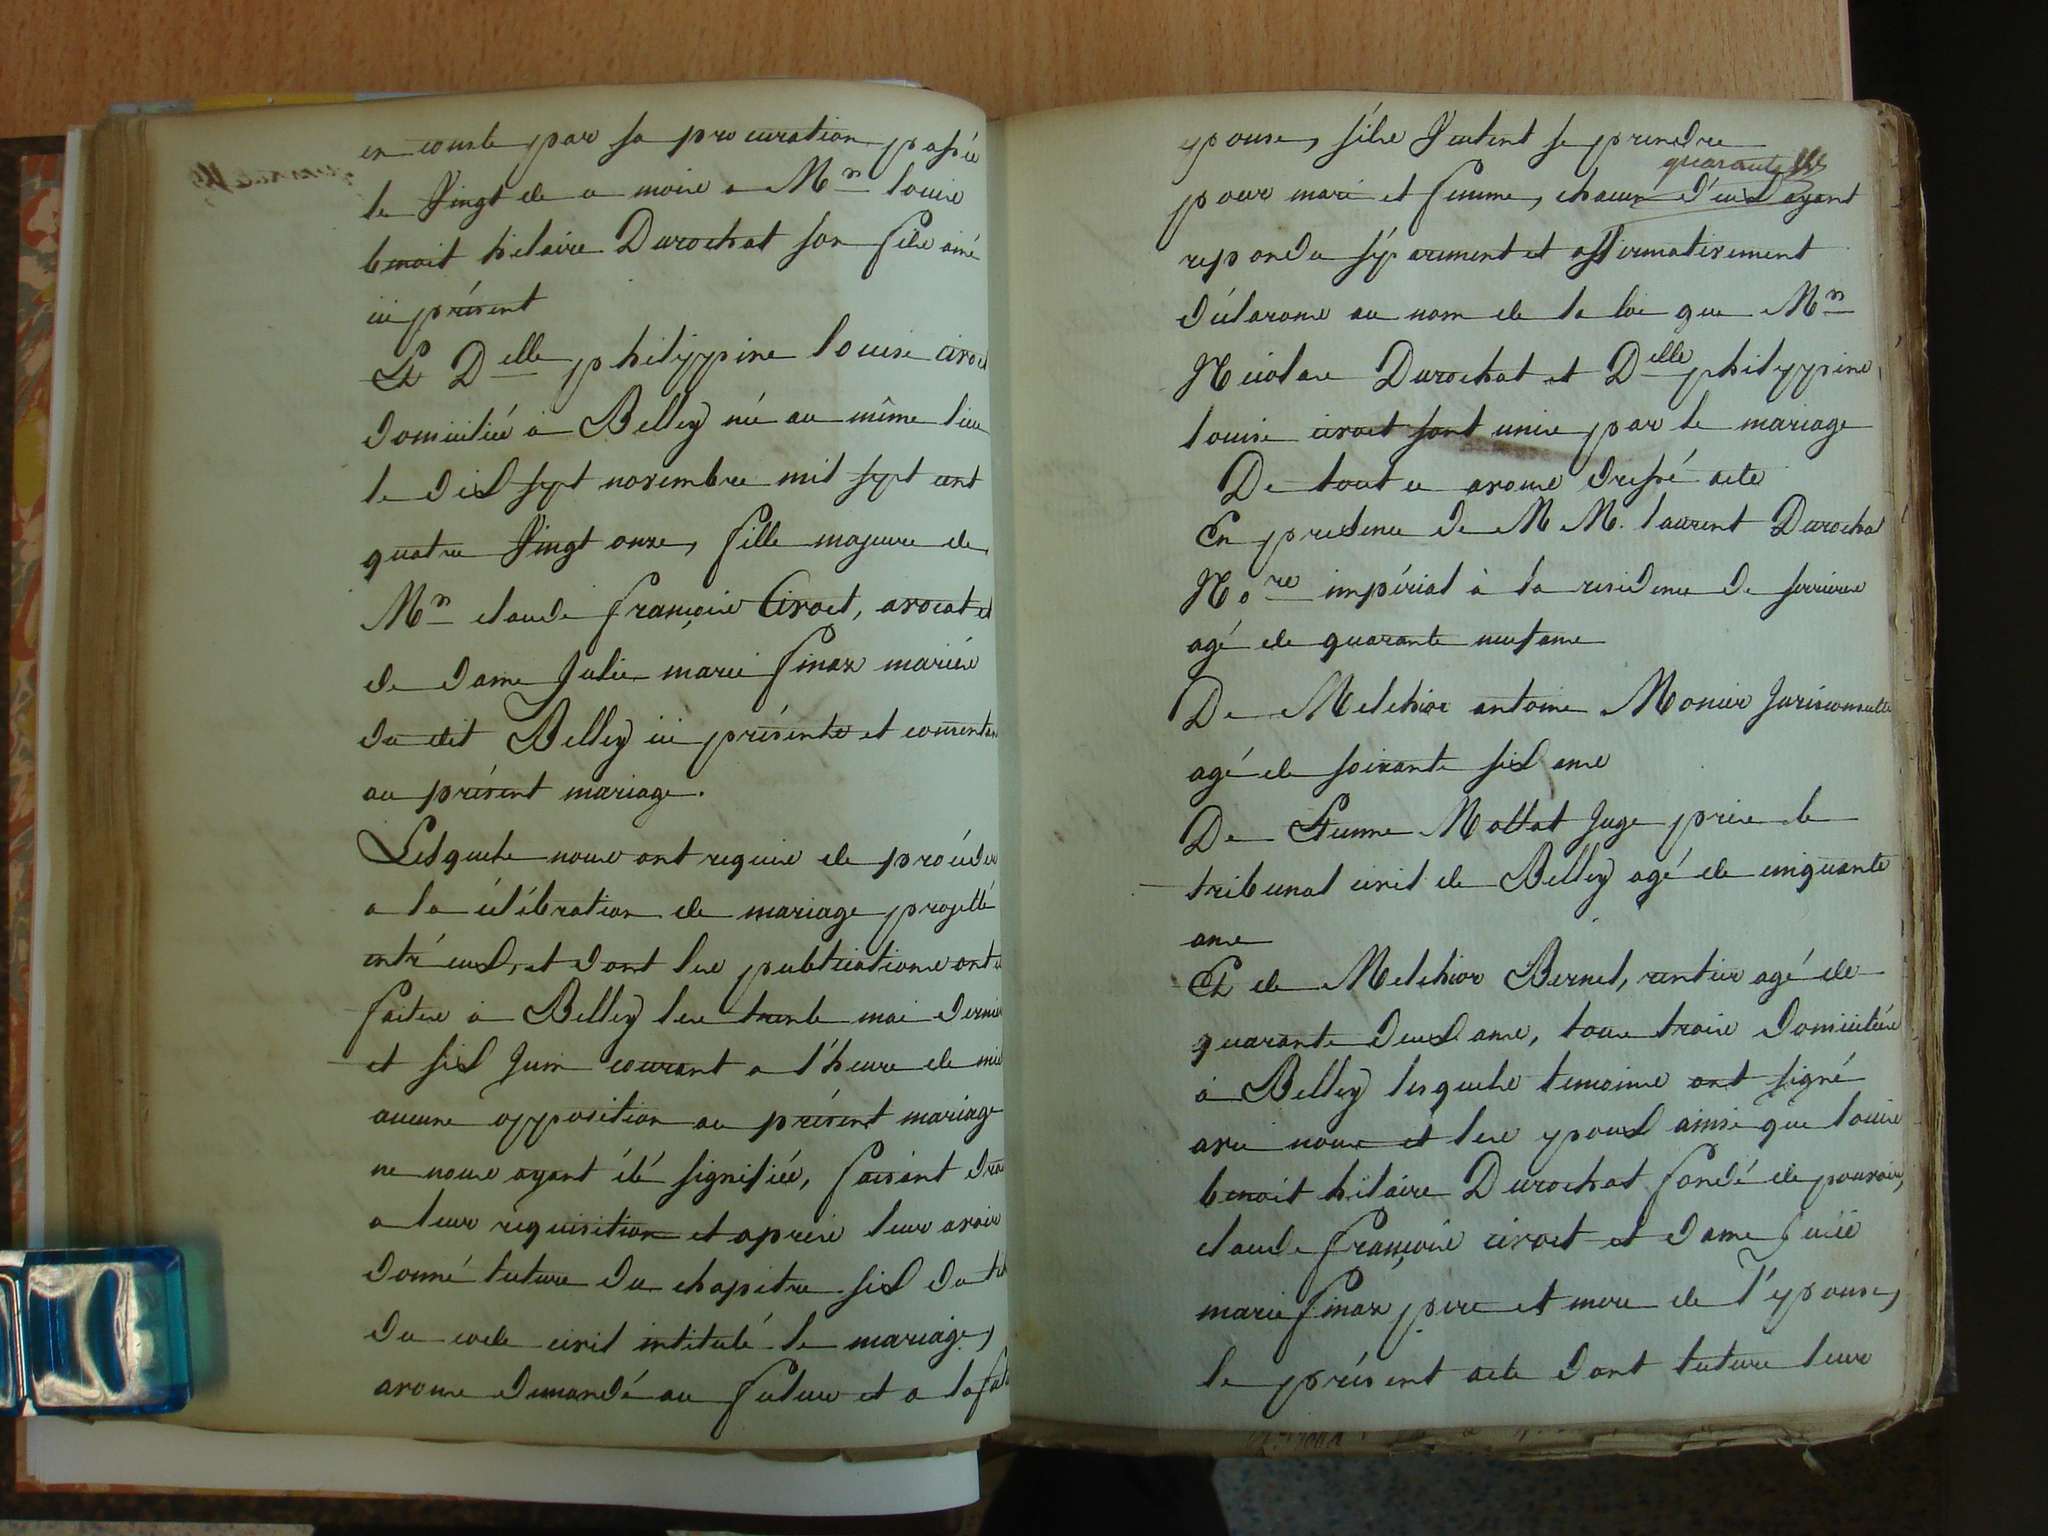 en conste par sa procuration passée
le Vingt de ce mois a Mr. louis
benoit hilaire Durochat son fils ainé
ici présent
Et Delle philippine louise civoct
domiciliée à Belley née au même lieu
le dix sept novembre mil sept cent
quatre Vingt onze, fille majeure de
Mr. claude françois Civoct, avocat et
de dame Julie marie finaz mariés
du dit Belley ici présents et consentans
au présent mariage.
Lesquels nous ont requis de procéder
a la célébration de mariage projetté
entr'eux, et dont les publications ont
faites à Belley les trente mai dernier
et six Juin courant a l'heure de midi
aucune opposition au présent mariage
ne nous ayant été signifiée, faisant droit
a leur requisition et après leur avoir
donné lecture du chapitre six du
du code civil intitulé le mariage,
avons demandé au future et a la
epouse, s'ils Veulent se prendre
quarante
pour mari et femme, chacun d'eux ayant
repondu séparement et affirmativement
déclarons au nom de la loi que Mr.
Nicolas Durochat et Delle philippine
louise civoct sont unis par le mariage
De tout ce avons dressé acte
En presence de M M. laurent Durochat
Nore impérial à la residence de serrieres
agé de quarante neuf ans
De Melchior antoine Monier Jurisconsulte
agé de soixante six ans
De Etienne Mollat Juge près le
tribunal civil de Belley agé de cinquante
ans
Et de Melchior Bernet, rentier agé de
quarante deux ans, tous trois domiciliés
à Belley lesquels temoins ont signé
avec nous et les epoux ainsi que louis
benoit hilaire Durochat fondé de pouvoir,
claude françois civoct et dame Julie
marie finaz pere et mere de l'epouse,
le présent acte dont lecture leur